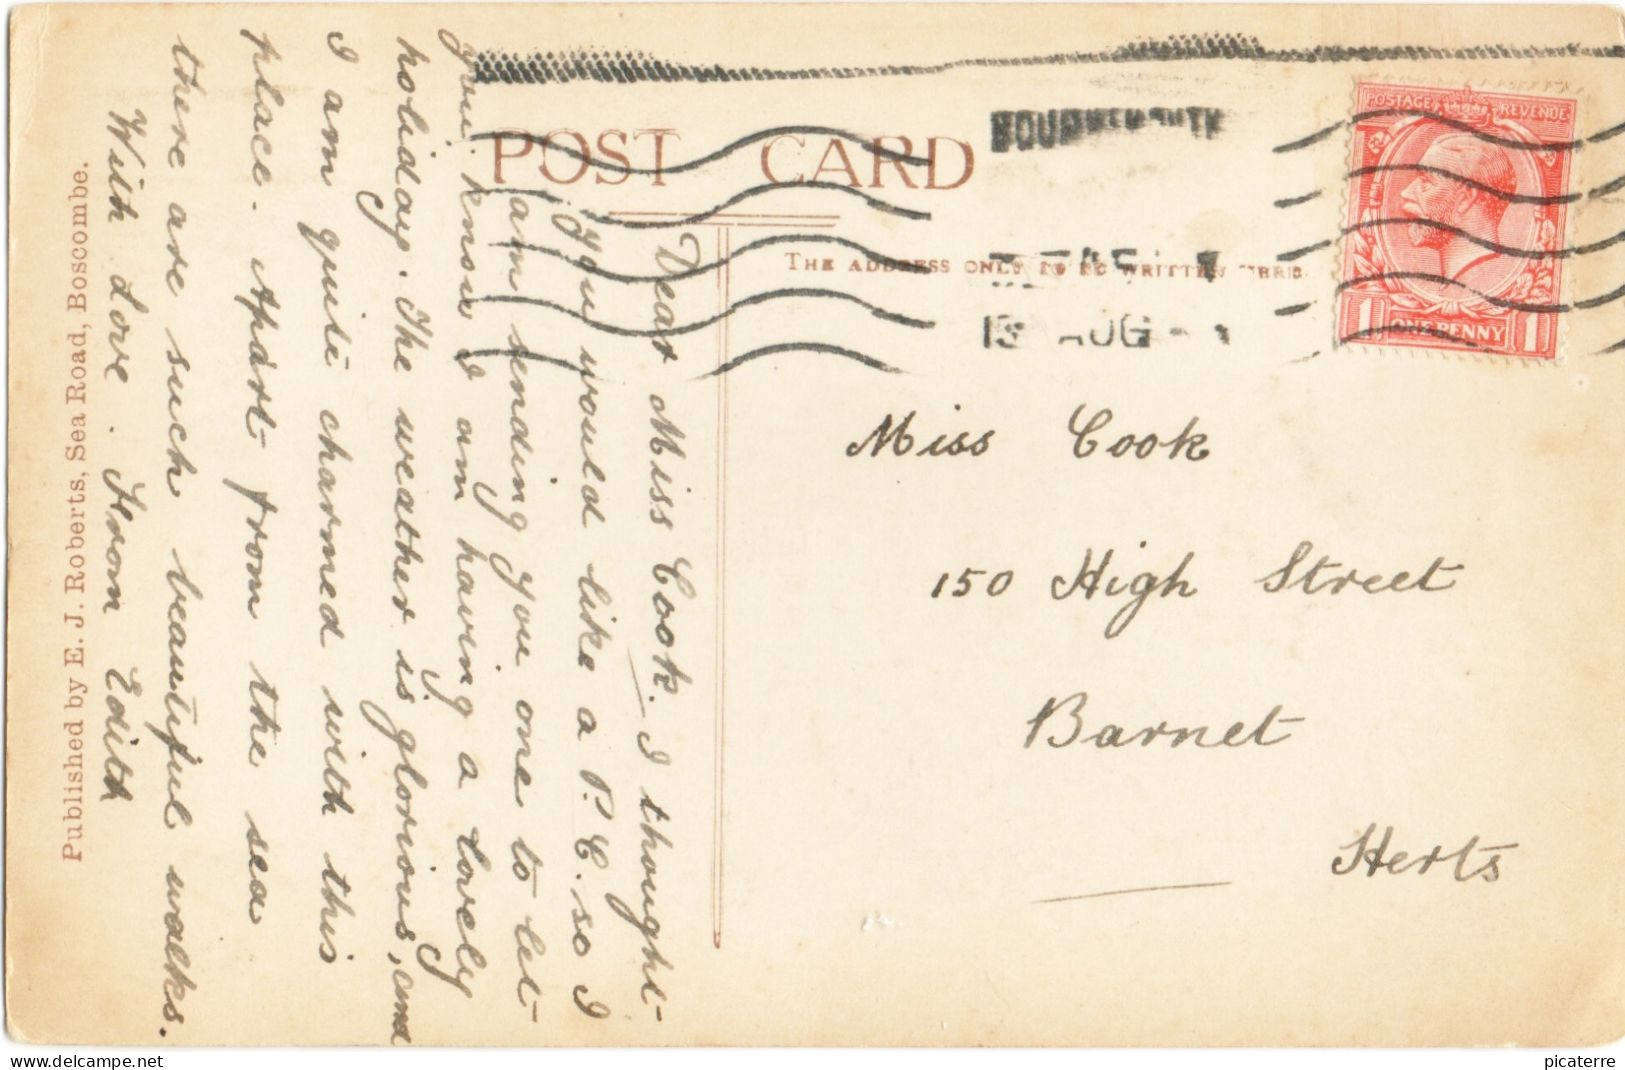 POST CARD
THE ADDRESS ONLY TO BE WRITTEN HERE
BOURNEMOUTH
13 AUG
POSTAGE REVENUE
1 ONE PENNY 1
Miss Cook
150 High Street
Barnet
Herts
Dear Miss Cook. I thought
you would like a P.C. so I
am sending you one to let
you know I am having a lovely
holiday. The weather is glorious, and
I am quite charmed with this
place. Apart from the sea
there are such beautiful walks.
With Love. From Edith
Published by E. J. Roberts, Sea Road, Boscombe.
www.delcampe.net
picaterre